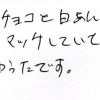 チョコと白あん
マッチしていて
うたです。